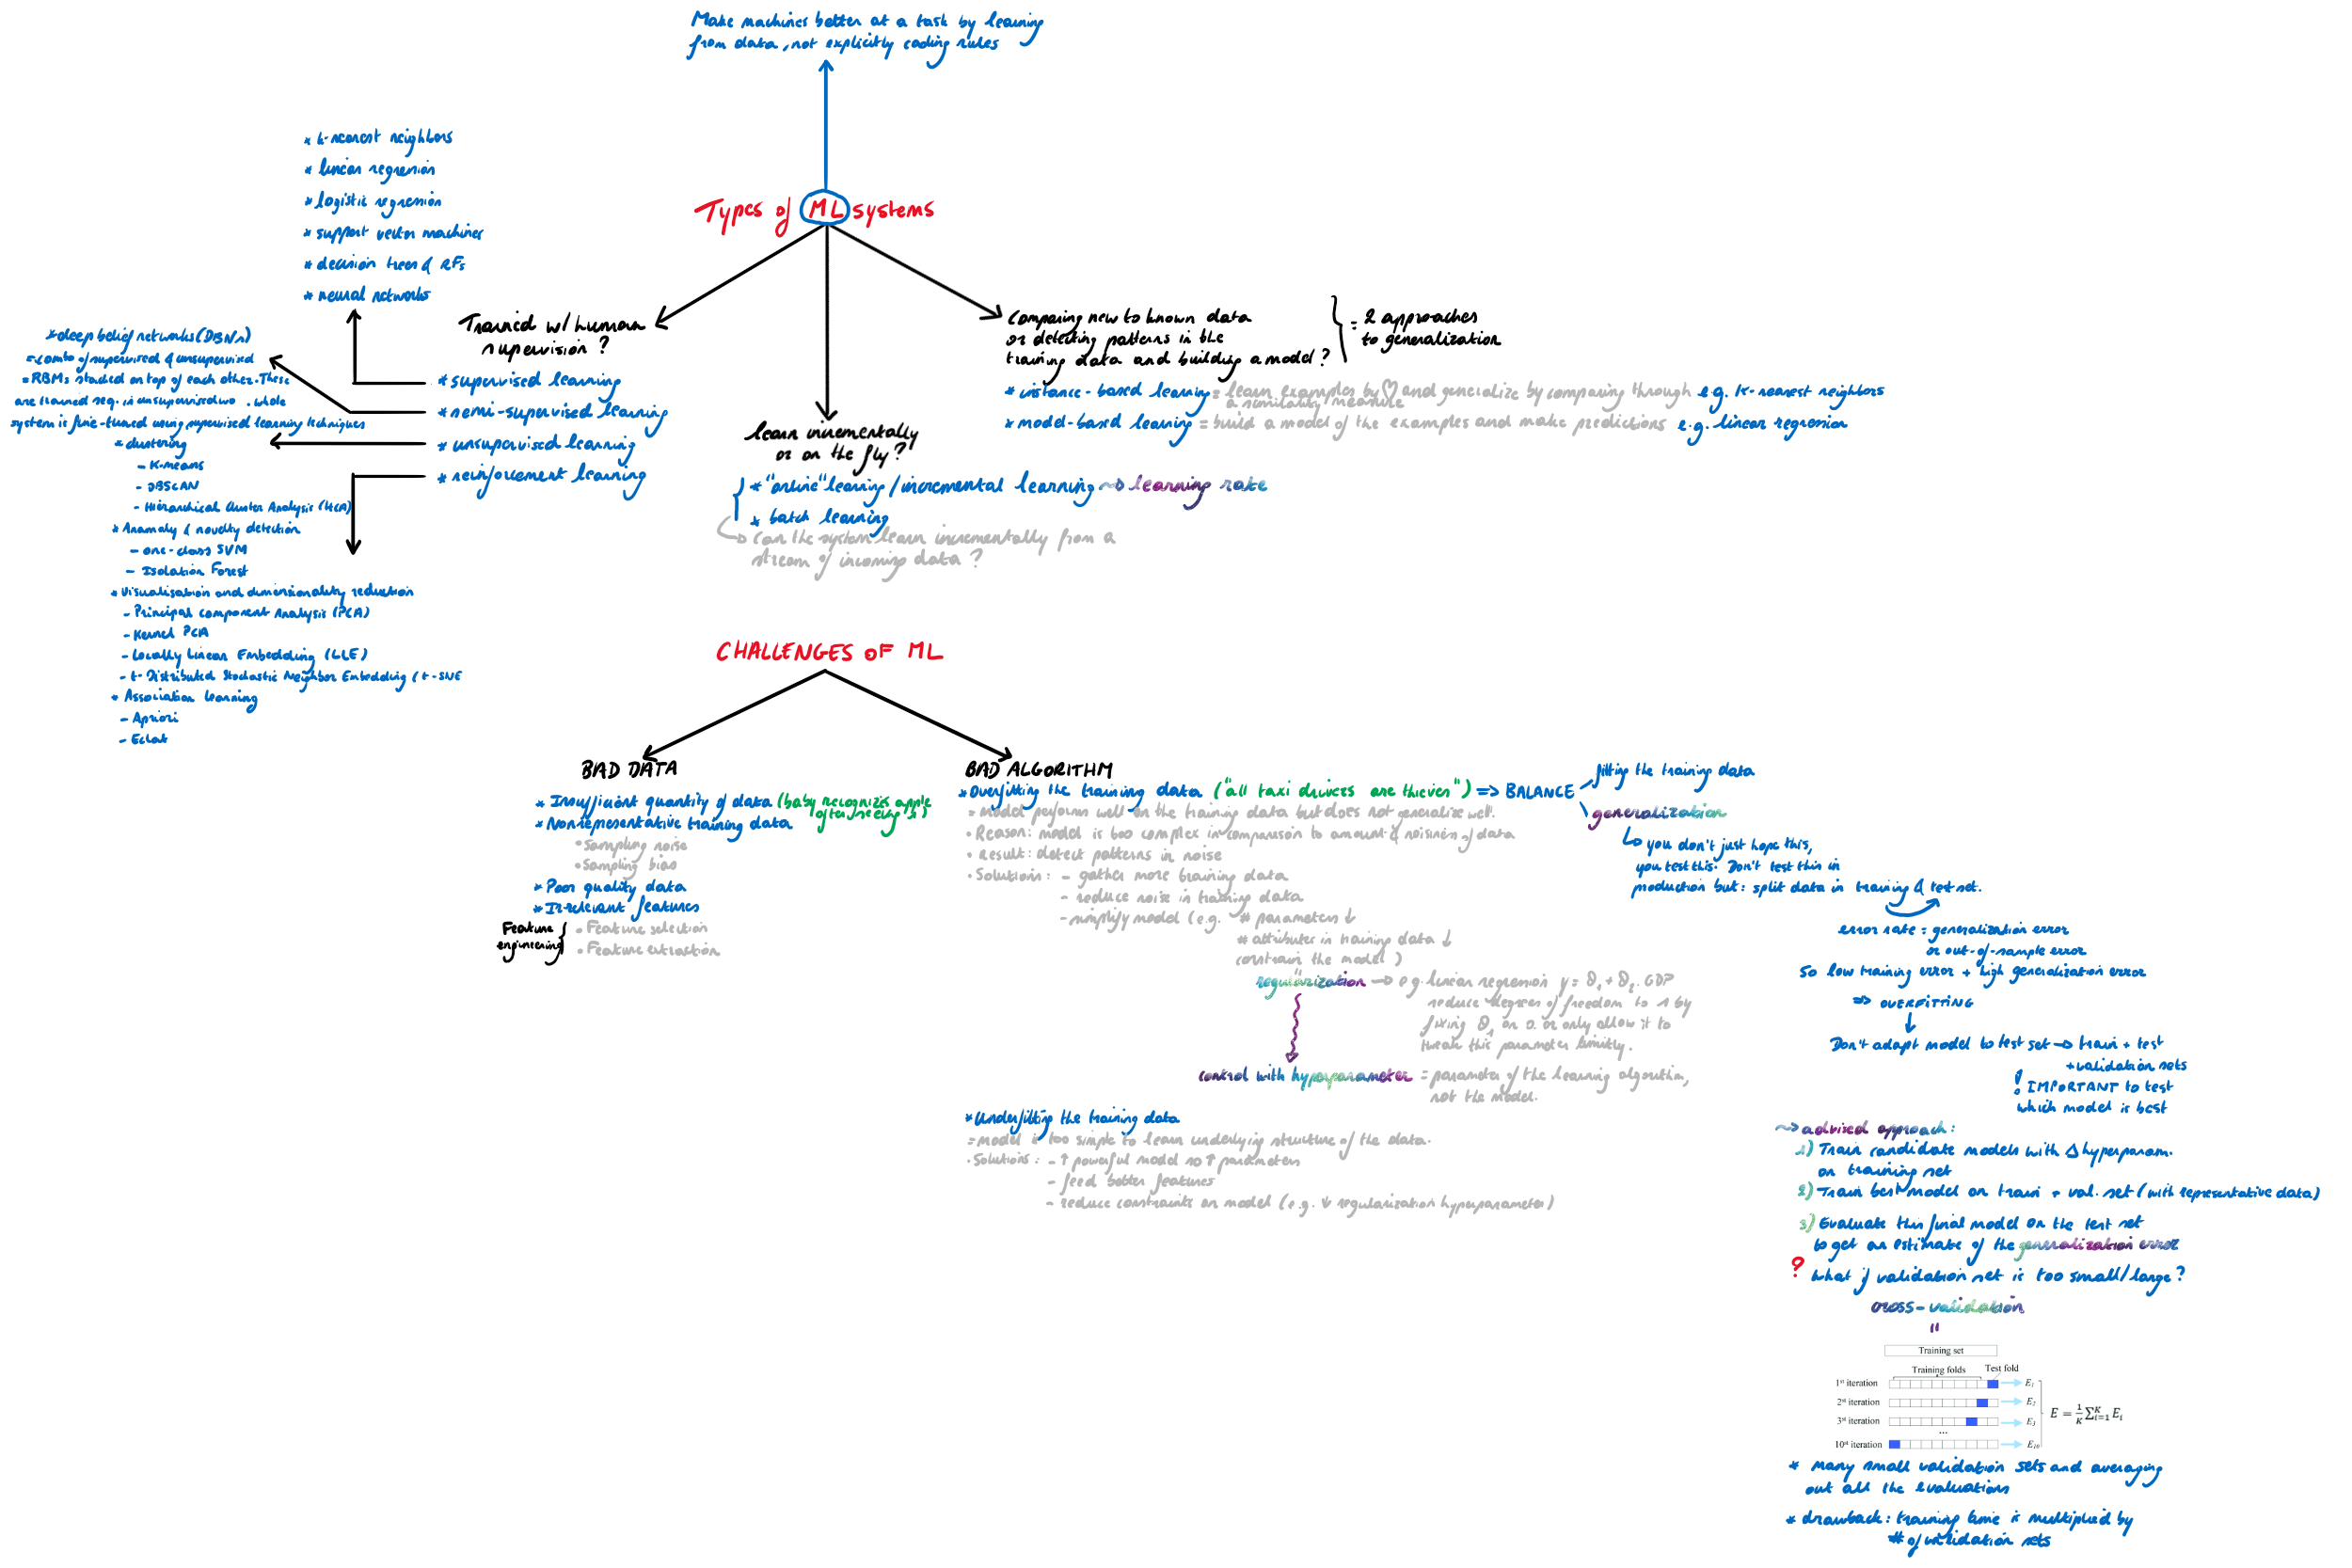 Make machines better at a task by learning
from data, not explicitly coding rules
Types of ML systems
* k-nearest neighbors
* linear regression
* logistic regression
* support vector machines
* decision trees & RFs
* neural networks
Trained w/ human
supervision?
* supervised learning
* semi-supervised learning
* unsupervised learning
* reinforcement learning
* deep belief networks (DBNs)
= combo of supervised & unsupervised
= RBMs stacked on top of each other. These
are trained seq. in unsupervised wo . whole
system is fine-tuned using supervised learning techniques
* clustering
- K-means
- DBSCAN
- Hierarchical Cluster Analysis (HCA)
* Anomaly & novelty detection
- one-class SVM
- Isolation Forest
* Visualisation and dimensionality reduction
- Principal component Analysis (PCA)
- Kernel PCA
- Locally Linear Embedding (LLE)
- t-Distributed Stochastic Neighbor Embedding (t-SNE
* Association learning
- Apriori
- Eclat
learn incrementally
or on the fly?
* "online" learning / incremental learning ~> learning rate
* batch learning
-> Can the system learn incrementally from a
stream of incoming data?
Comparing new to known data
or detecting patterns in the
training data and building a model?
= 2 approaches
to generalization
* instance-based learning = learn examples by ♡ and generalize by comparing through e.g. K-nearest neighbors
a similarity measure
* model-based learning = build a model of the examples and make predictions e.g. linear regression
CHALLENGES OF ML
BAD DATA
* Insufficient quantity of data (baby recognizes apple
after seeing 1)
* Nonrepresentative training data
• Sampling noise
• Sampling bias
* Poor quality data
* Irrelevant features
Feature
engineering
• Feature selection
• Feature extraction
BAD ALGORITHM
* Overfitting the training data ("all taxi drivers are thieves") => BALANCE
= Model performs well on the training data but does not generalize well.
• Reason: model is too complex in comparison to amount & noisiness of data
• Result: detect patterns in noise
• Solutions: - gather more training data
- reduce noise in training data
- simplify model (e.g. # parameters ↓
# attributes in training data ↓
constrain the model)
"
regularization -> e.g. linear regression y = θ1 + θ2 . GDP
reduce degrees of freedom to 1 by
fixing θ1 on 0 or only allow it to
tweak this parameter limitly.
control with hyperparameter = parameter of the learning algorithm,
not the model.
* Underfitting the training data
= model is too simple to learn underlying structure of the data.
• Solutions: - ↑ powerful model so ↑ parameters
- feed better features
- reduce constraints on model (e.g. ↓ regularization hyperparameter)
fitting the training data
generalization
you don't just hope this,
you test this. Don't test this in
production but: split data in training & test set.
error rate = generalization error
or out-of-sample error
So low training error + high generalization error
=> OVERFITTING
Don't adapt model to test set -> train + test
+ validation sets
! IMPORTANT to test
which model is best
~> advised approach:
1) Train candidate models with Δ hyperparam.
on training set
2) Train best model on train + val. set (with representative data)
3) Evaluate this final model on the test set
to get an estimate of the generalization error
? What if validation set is too small/large?
cross-validation
"
Training set
Training folds Test fold
1st iteration E1
2st iteration E2
3st iteration E3
...
10st iteration E10
E = 1/K ∑ K i=1 Ei
* Many small validation sets and averaging
out all the evaluations
* drawback: training time is multiplied by
# of validation sets